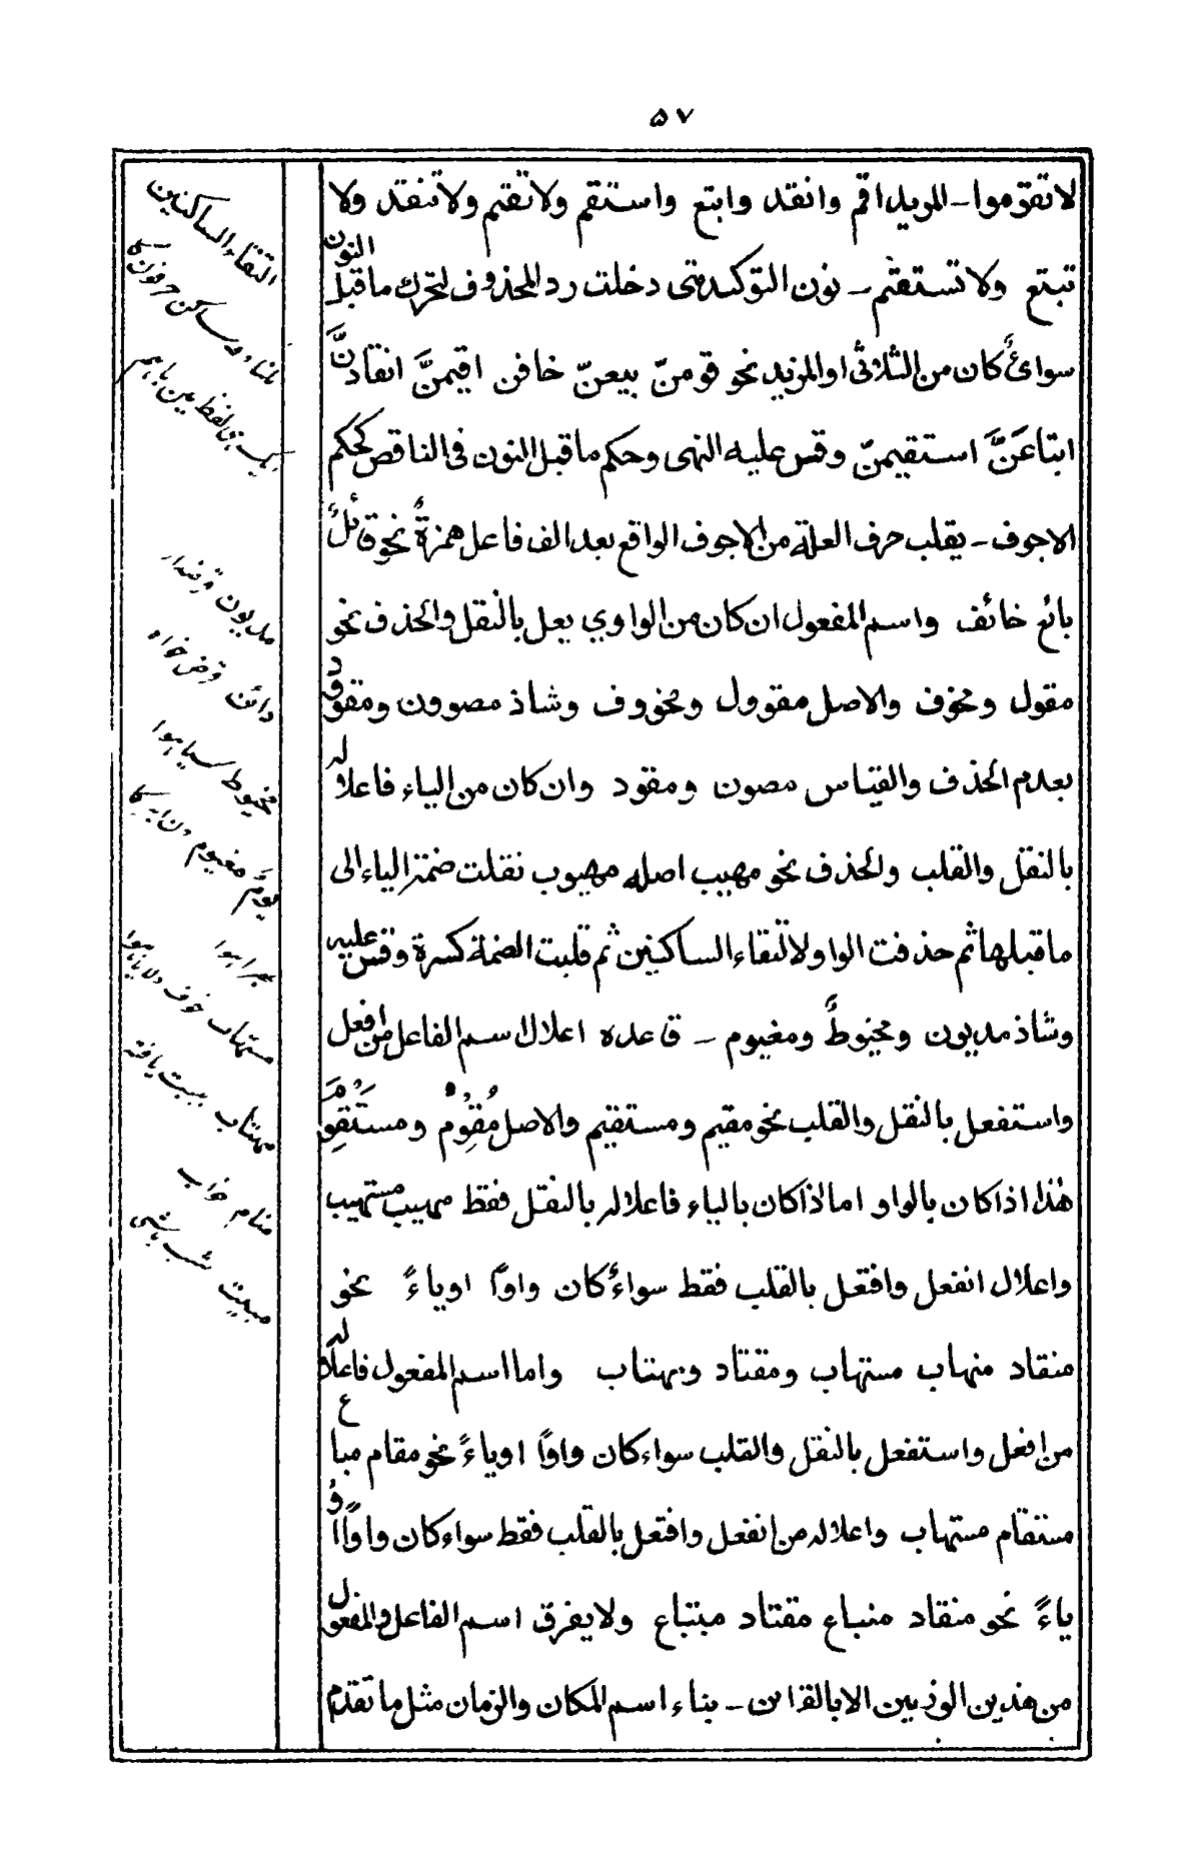 ٥٧
لا تقوموا ـ المزيد اقم وانقد وابتع واستقم ولا تقم ولا تنقد ولا
تبتع ولا تستقم ـ نون التوكيد متى دخلت رد المحذوف لتحرك ما قبل النون
سواءٌ كان من الثلاثى او المزيد نحو قومنّ بيعنّ خافن اقيمنَّ انقادنَّ
ابتاعَنَّ استقيمنّ وقس عليه النهى وحكم ما قبل النون فى الناقص كحكم
الاجوف ـ يقلب حرف العلة من الاجوف الواقع بعد الف فاعل همزةً نحو قائلٌ
بائع خائف واسم المفعول ان كان من الواوي يعل بالنقل والحذف نحو
مقول ومخوف والاصل مقوول ومخووف وشاذ مصوون ومقوود
بعدم الحذف والقياس مصون ومقود وان كان من الياء فاعلاله
بالنقل والقلب والحذف نحو مهيب اصله مهيوب نقلت ضمة الياء الى
ما قبلها ثم حذفت الواو لالتقاء الساكنين ثم قلبت الضمة كسرة وقس عليه
وشاذ مديون ومخيوطٌ ومغيوم ـ قاعده اعلال اسم الفاعل من افعل
واستفعل بالنقل والقلب نحو مقيم ومستقيم والاصل مُقْوِمٌ ومستَقْوِمٌ
هٰذا اذا كان بالواو اما اذا كان بالياء فاعلاله بالنقل فقط مهيب مستهيب
واعلال انفعل وافتعل بالقلب فقط سواءٌ كان واوًا او ياءً نحو
منقاد منهاب مستهاب ومقتاد ومهتاب واما اسم المفعول فاعلاله
من افعل واستفعل بالنقل والقلب سواء كان واوًا او ياءً نحو مقام مباع
مستقام مستهاب واعلاله من انفعل وافتعل بالقلب فقط سواء كان واوًا او
ياءً نحو منقاد منباع مقتاد مبتاع ولا يفرق اسم الفاعل والمفعول
من هذين الوزنين الا بالقرائن ـ بناء اسم المكان والزمان مثل ما تقدم
التقاء الساكنين
ملنا دو ساكن حرفون كا
ايك هى لفظ مين باہم
مديون قرضدار
دائن قرض خواه
مخيوط سيا ہوا
يومٌ مغيوم دن ابر كا
گھرا ہوا
مستهاب خوف دلايا ہوا
مهتاب ہيبت يافته
منام خواب
مبيت شب باشى